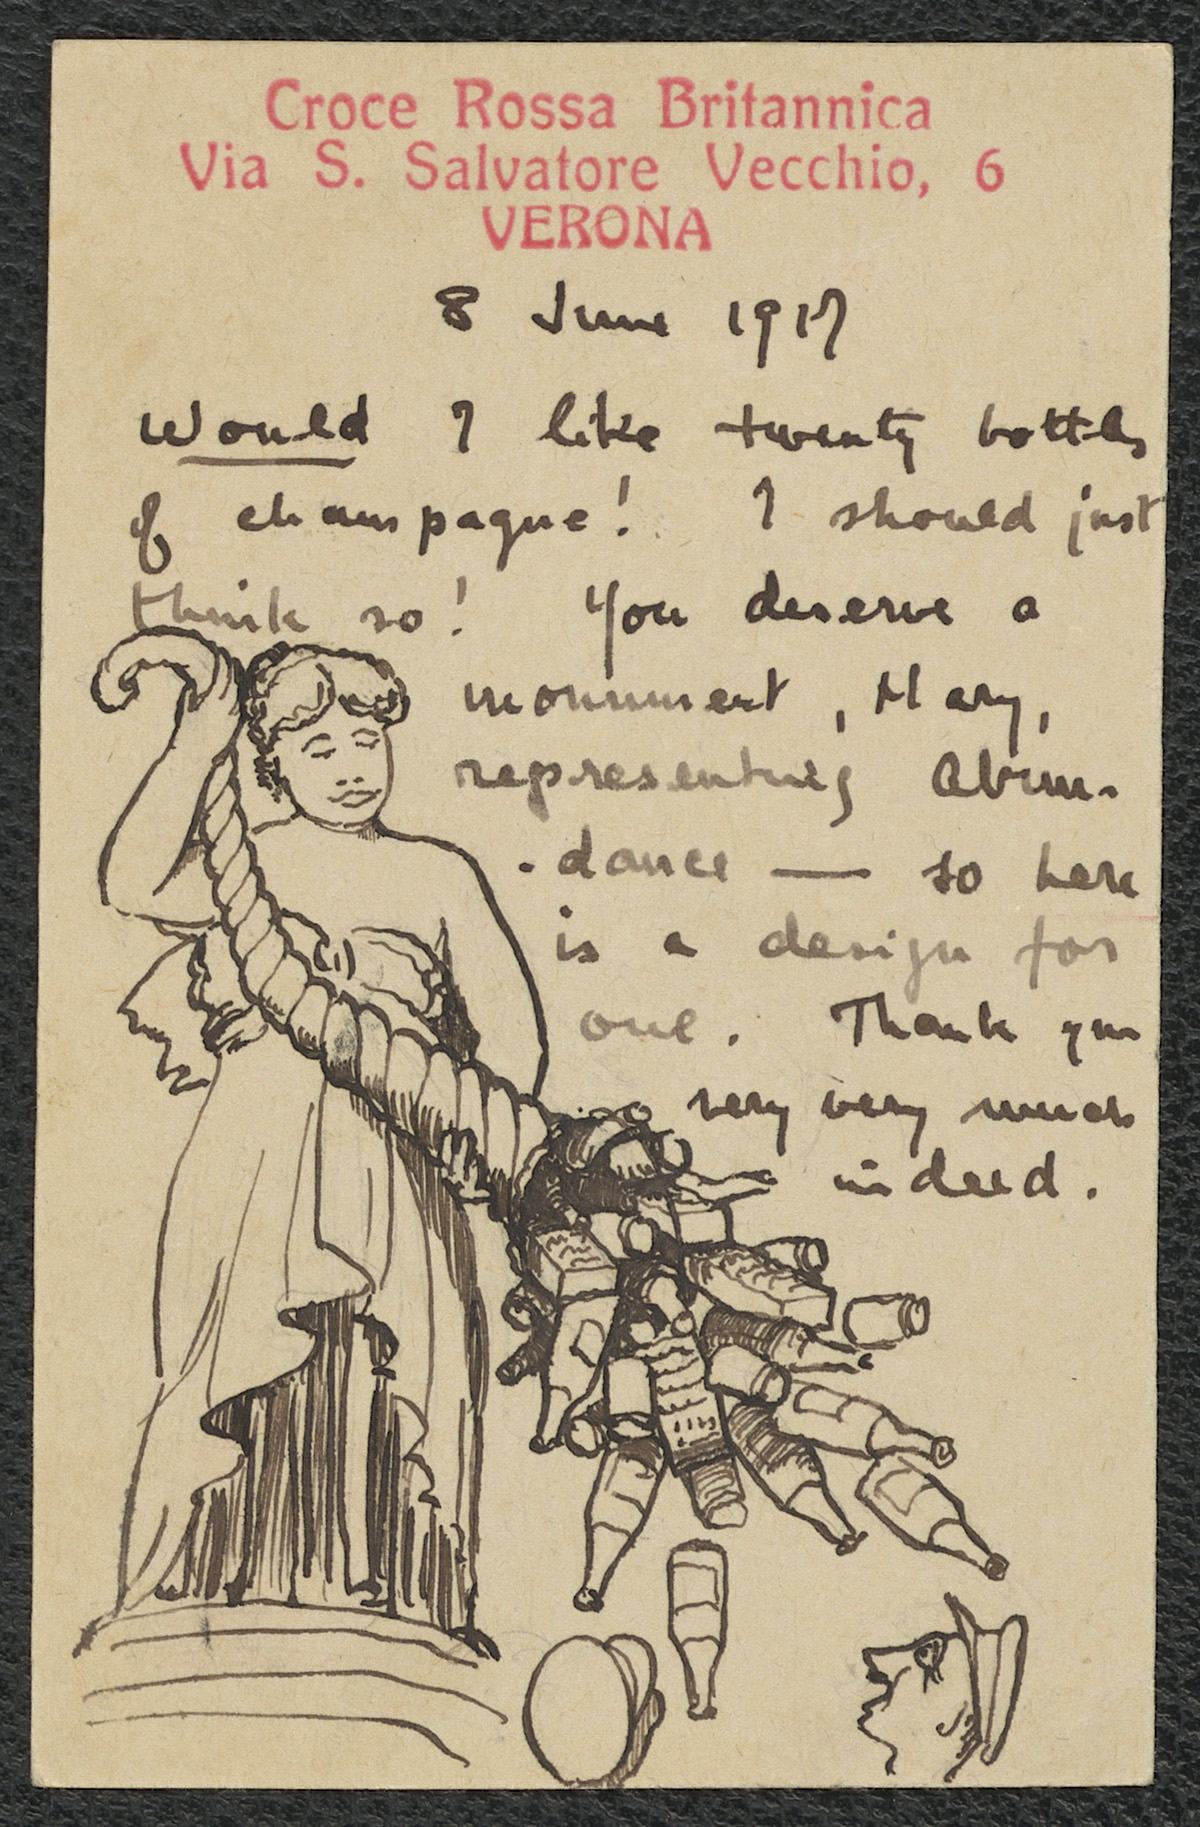 Croce Rossa Britannica
Via S. Salvatore Vecchio, 6
VERONA
8 June 1917
Would I like twenty bottles
of champagne! I should just
think so! You deserve a
monument, Mary,
representing Abun-
-dance — so here
is a design for
one. Thank you
very very much
indeed.